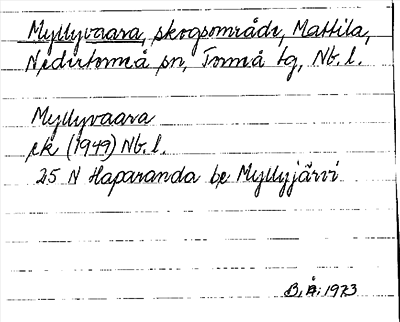 Myllyvaara, skogsområde, Mattila,
Nedertorneå sn, Torneå tg, Nb. l.
Myllyvaara
ek (1949) Nb. l.
25 N Haparanda be Myllyjärvi
B. Å: 1973